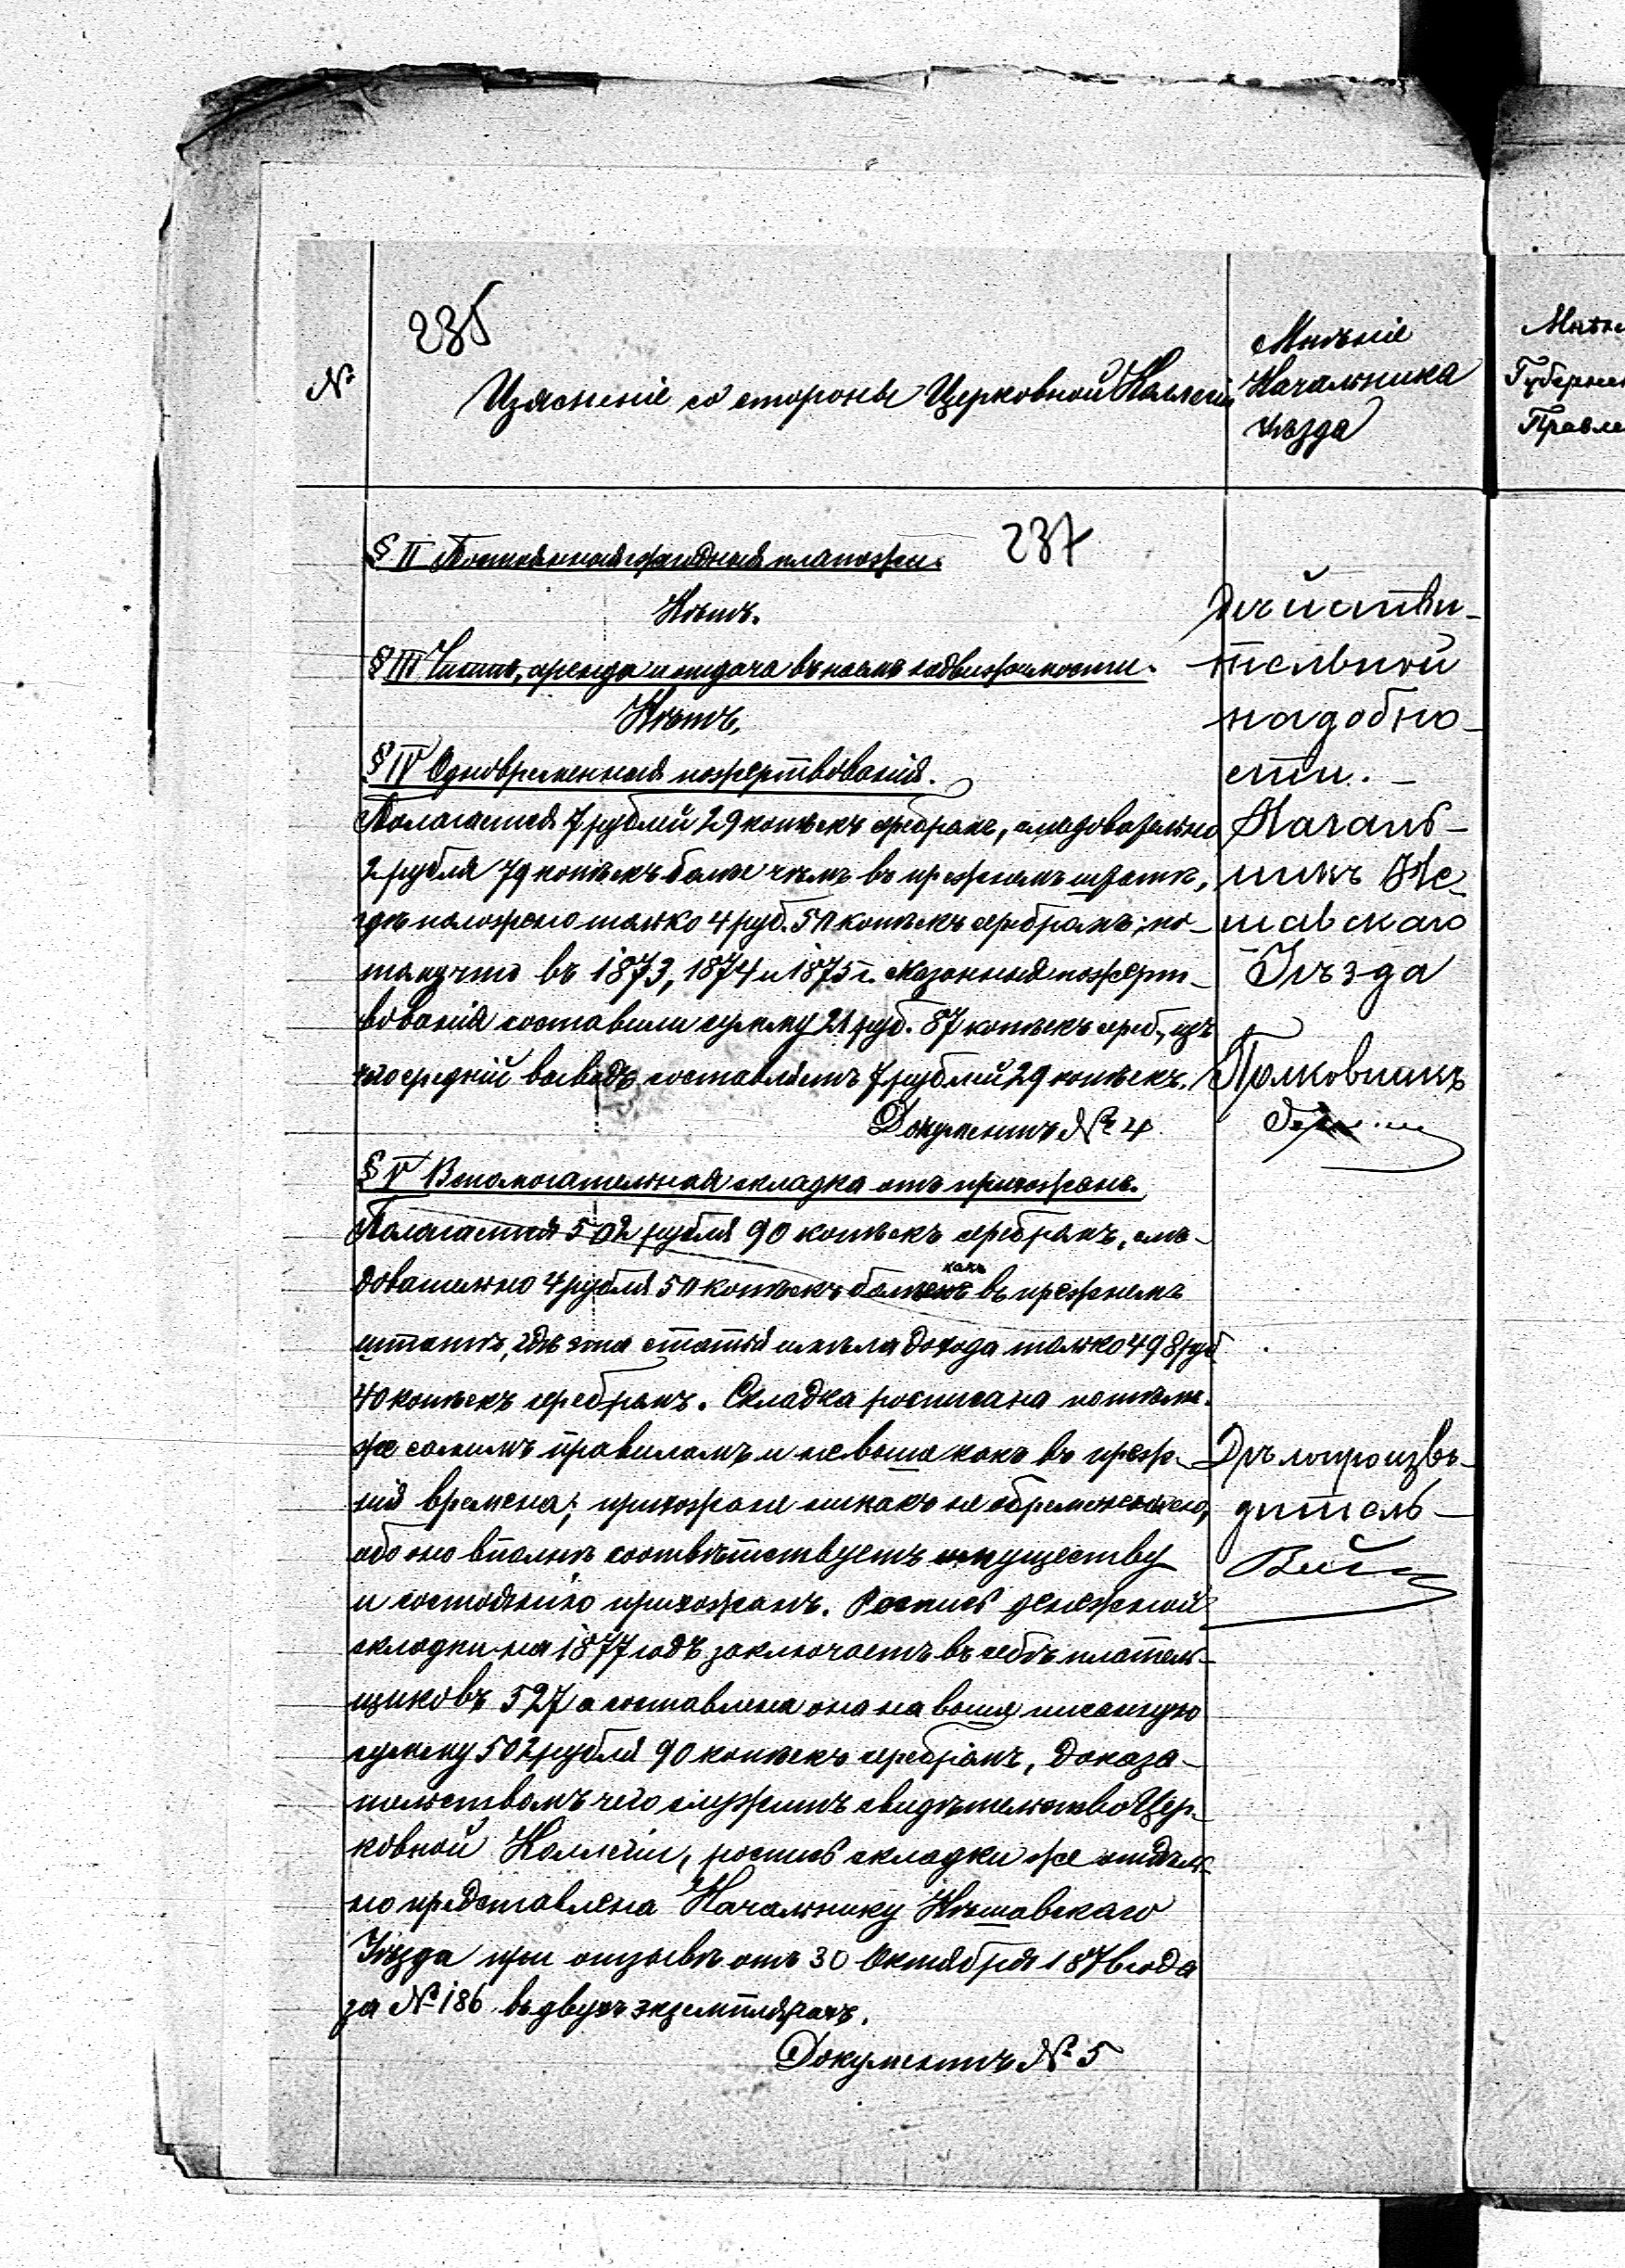 235
№
Изясненіе со стороны Церковной Коллегіи
Мнѣніе
Начальника
уѣзда
Губерн
Правле
237
§ II Постоянная
Нѣтъ.
§ III Чиншъ, аренда и отдача въ наемъ недвижимости.
Нѣтъ.
§ IV Одновременныя пожертвованія.
Полагается 7 рублей 29 копѣекъ серебромъ, следовательно
2 рубля 79 копѣекъ более чѣмъ въ прежнемъ штатѣ,
гдѣ положено только 4 руб. 50 копѣекъ серебромъ; по-
тому что въ 1873, 1874 и 1875 г. сказанныя пожерт-
вованія составили сумму 21 руб. 87 копѣекъ сереб., изъ
чего средній выводъ составляетъ 7 рублей 29 копѣекъ.
Документъ № 4
§ V Вспомогательная складка отъ прихожанъ.
Полагается 502 рубля 90 копѣекъ серебромъ, слѣ-
довательно 4 рубля 50 копѣекъ более какъ въ прежнемъ
штатѣ, гдѣ эта статья имѣла дохода только 498 руб
40 копѣекъ серебромъ. Складка росписана по тѣмъ-
же самымъ правиламъ и не выше какъ въ преж-
нія времена; прихожане никакъ не обременены ею,
ибо оно вполнѣ соотвѣтствуетъ имуществу
и состоянію прихожанъ. Роспись денежной
складки на 1877 годъ заключаетъ въ себѣ платель-
щиковъ 527 а составлена она на выше писанную
сумму 502 рубля 90 копѣекъ серебромъ, доказа-
тельствомъ чего служитъ свидѣтельство Цер-
ковной Коллегіи, роспись складки же отдѣль-
но представлена Начальнику Нѣшавскаго
Уѣзда при отзывѣ отъ 30 Октября 1876 года
за № 186 въ двухъ экземплярахъ.
Документъ № 5
Дѣйстви-
тельной
надобно-
сти. —
Началь-
никъ Не-
шавскаго
Уѣзда
Полковникъ
Дѣлопроизво-
дитель